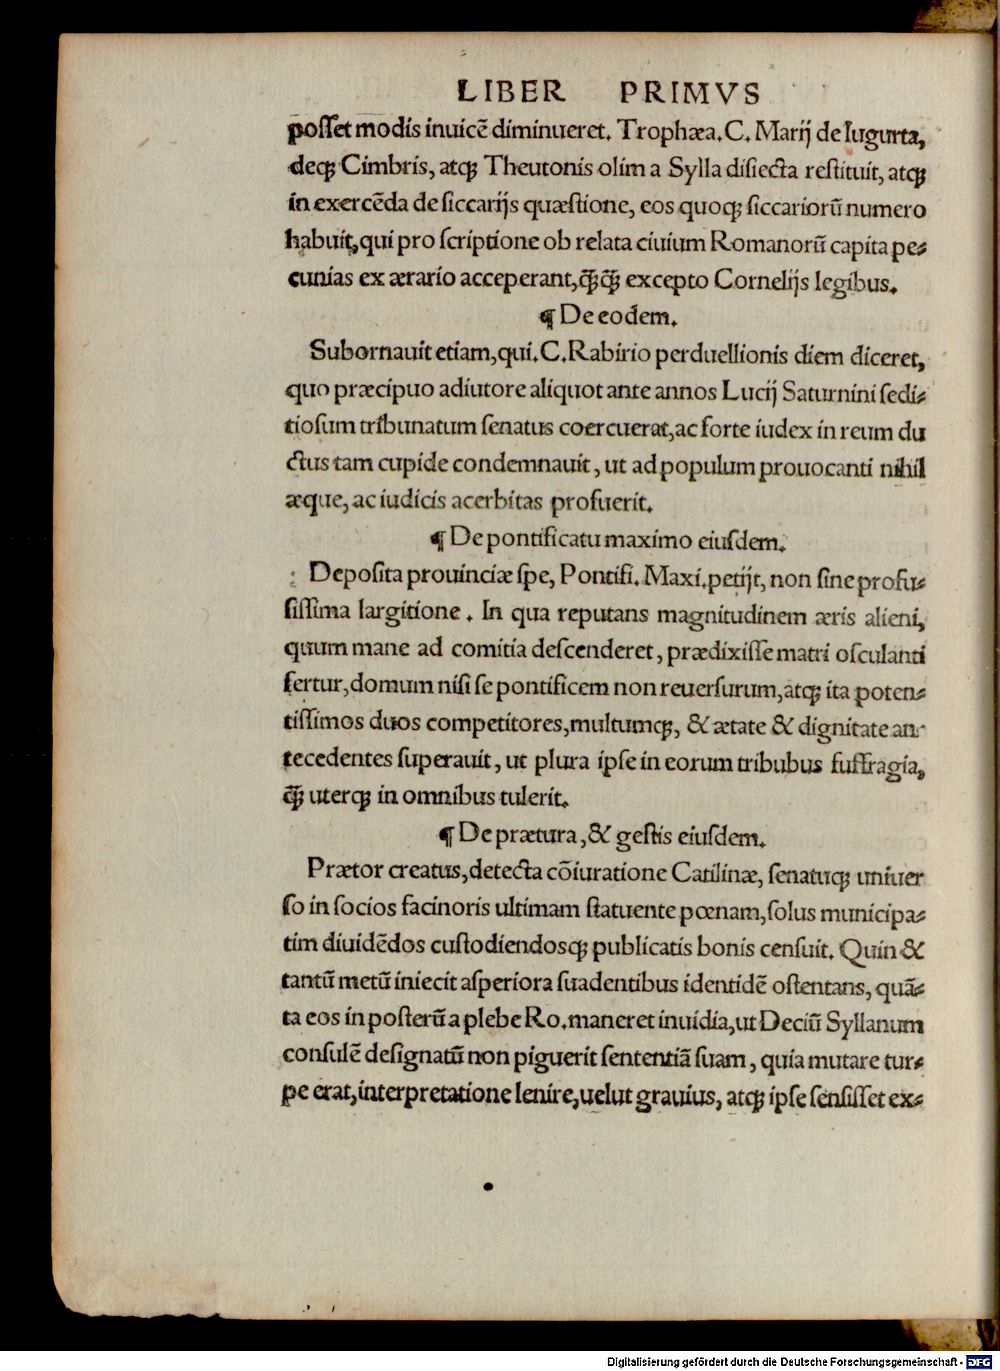 LIBER PRIMVS
poſſet modis inuicē diminueret. Trophæa. C. Marij de Iugurta,
deqꝫ Cimbris, atqꝫ Theutonis olim a Sylla diſiecta reſtituit, atqꝫ
in exercēda de ſiccarijs quæſtione, eos quoqꝫ ſiccariorū numero
habuit, qui pro ſcriptione ob relata ciuium Romanorū capita pe⸗
cunias ex ærario acceperant, q̄qꝫ̄ excepto Cornelijs legibus.
¶ De eodem.
Subornauit etiam, qui. C. Rabirio perduellionis diem diceret,
quo præcipuo adiutore aliquot ante annos Lucij Saturnini ſedi⸗
tioſum tribunatum ſenatus coercuerat, ac forte iudex in reum du
ctus tam cupide condemnauit, ut ad populum prouocanti nihil
æque, ac iudicis acerbitas profuerit.
¶ De pontificatu maximo eiuſdem.
Depoſita prouinciæ ſpe, Pontifi. Maxi. petijt, non ſine profu⸗
ſiſſima largitione. In qua reputans magnitudinem æris alieni,
quum mane ad comitia deſcenderet, prædixiſſe matri oſculanti
fertur, domum niſi ſe pontificem non reuerſurum, atqꝫ ita poten⸗
tiſſimos duos competitores, multumqꝫ, & ætate & dignitate an⸗
tecedentes ſuperauit, ut plura ipſe in eorum tribubus ſuffragia,
qꝫ̄ uterqꝫ in omnibus tulerit.
¶ De prætura, & geſtis eiuſdem.
Prætor creatus, detecta cōiuratione Catilinæ, ſenatuqꝫ uniuer
ſo in ſocios facinoris ultimam ſtatuente pœnam, ſolus municipa⸗
tim diuidēdos cuſtodiendosqꝫ publicatis bonis cenſuit. Quin &
tantū metū iniecit aſperiora ſuadentibus identidē oſtentans, quā⸗
ta eos in poſterū a plebe Ro. maneret inuidia, ut Deciū Syllanum
conſulē deſignatū non piguerit ſententiā ſuam, quia mutare tur⸗
pe erat, interpretatione lenire, uelut grauius, atqꝫ ipſe ſenſiſſet ex⸗
Digitalisierung gefördert durch die Deutsche Forschungsgemeinschaft - DFG